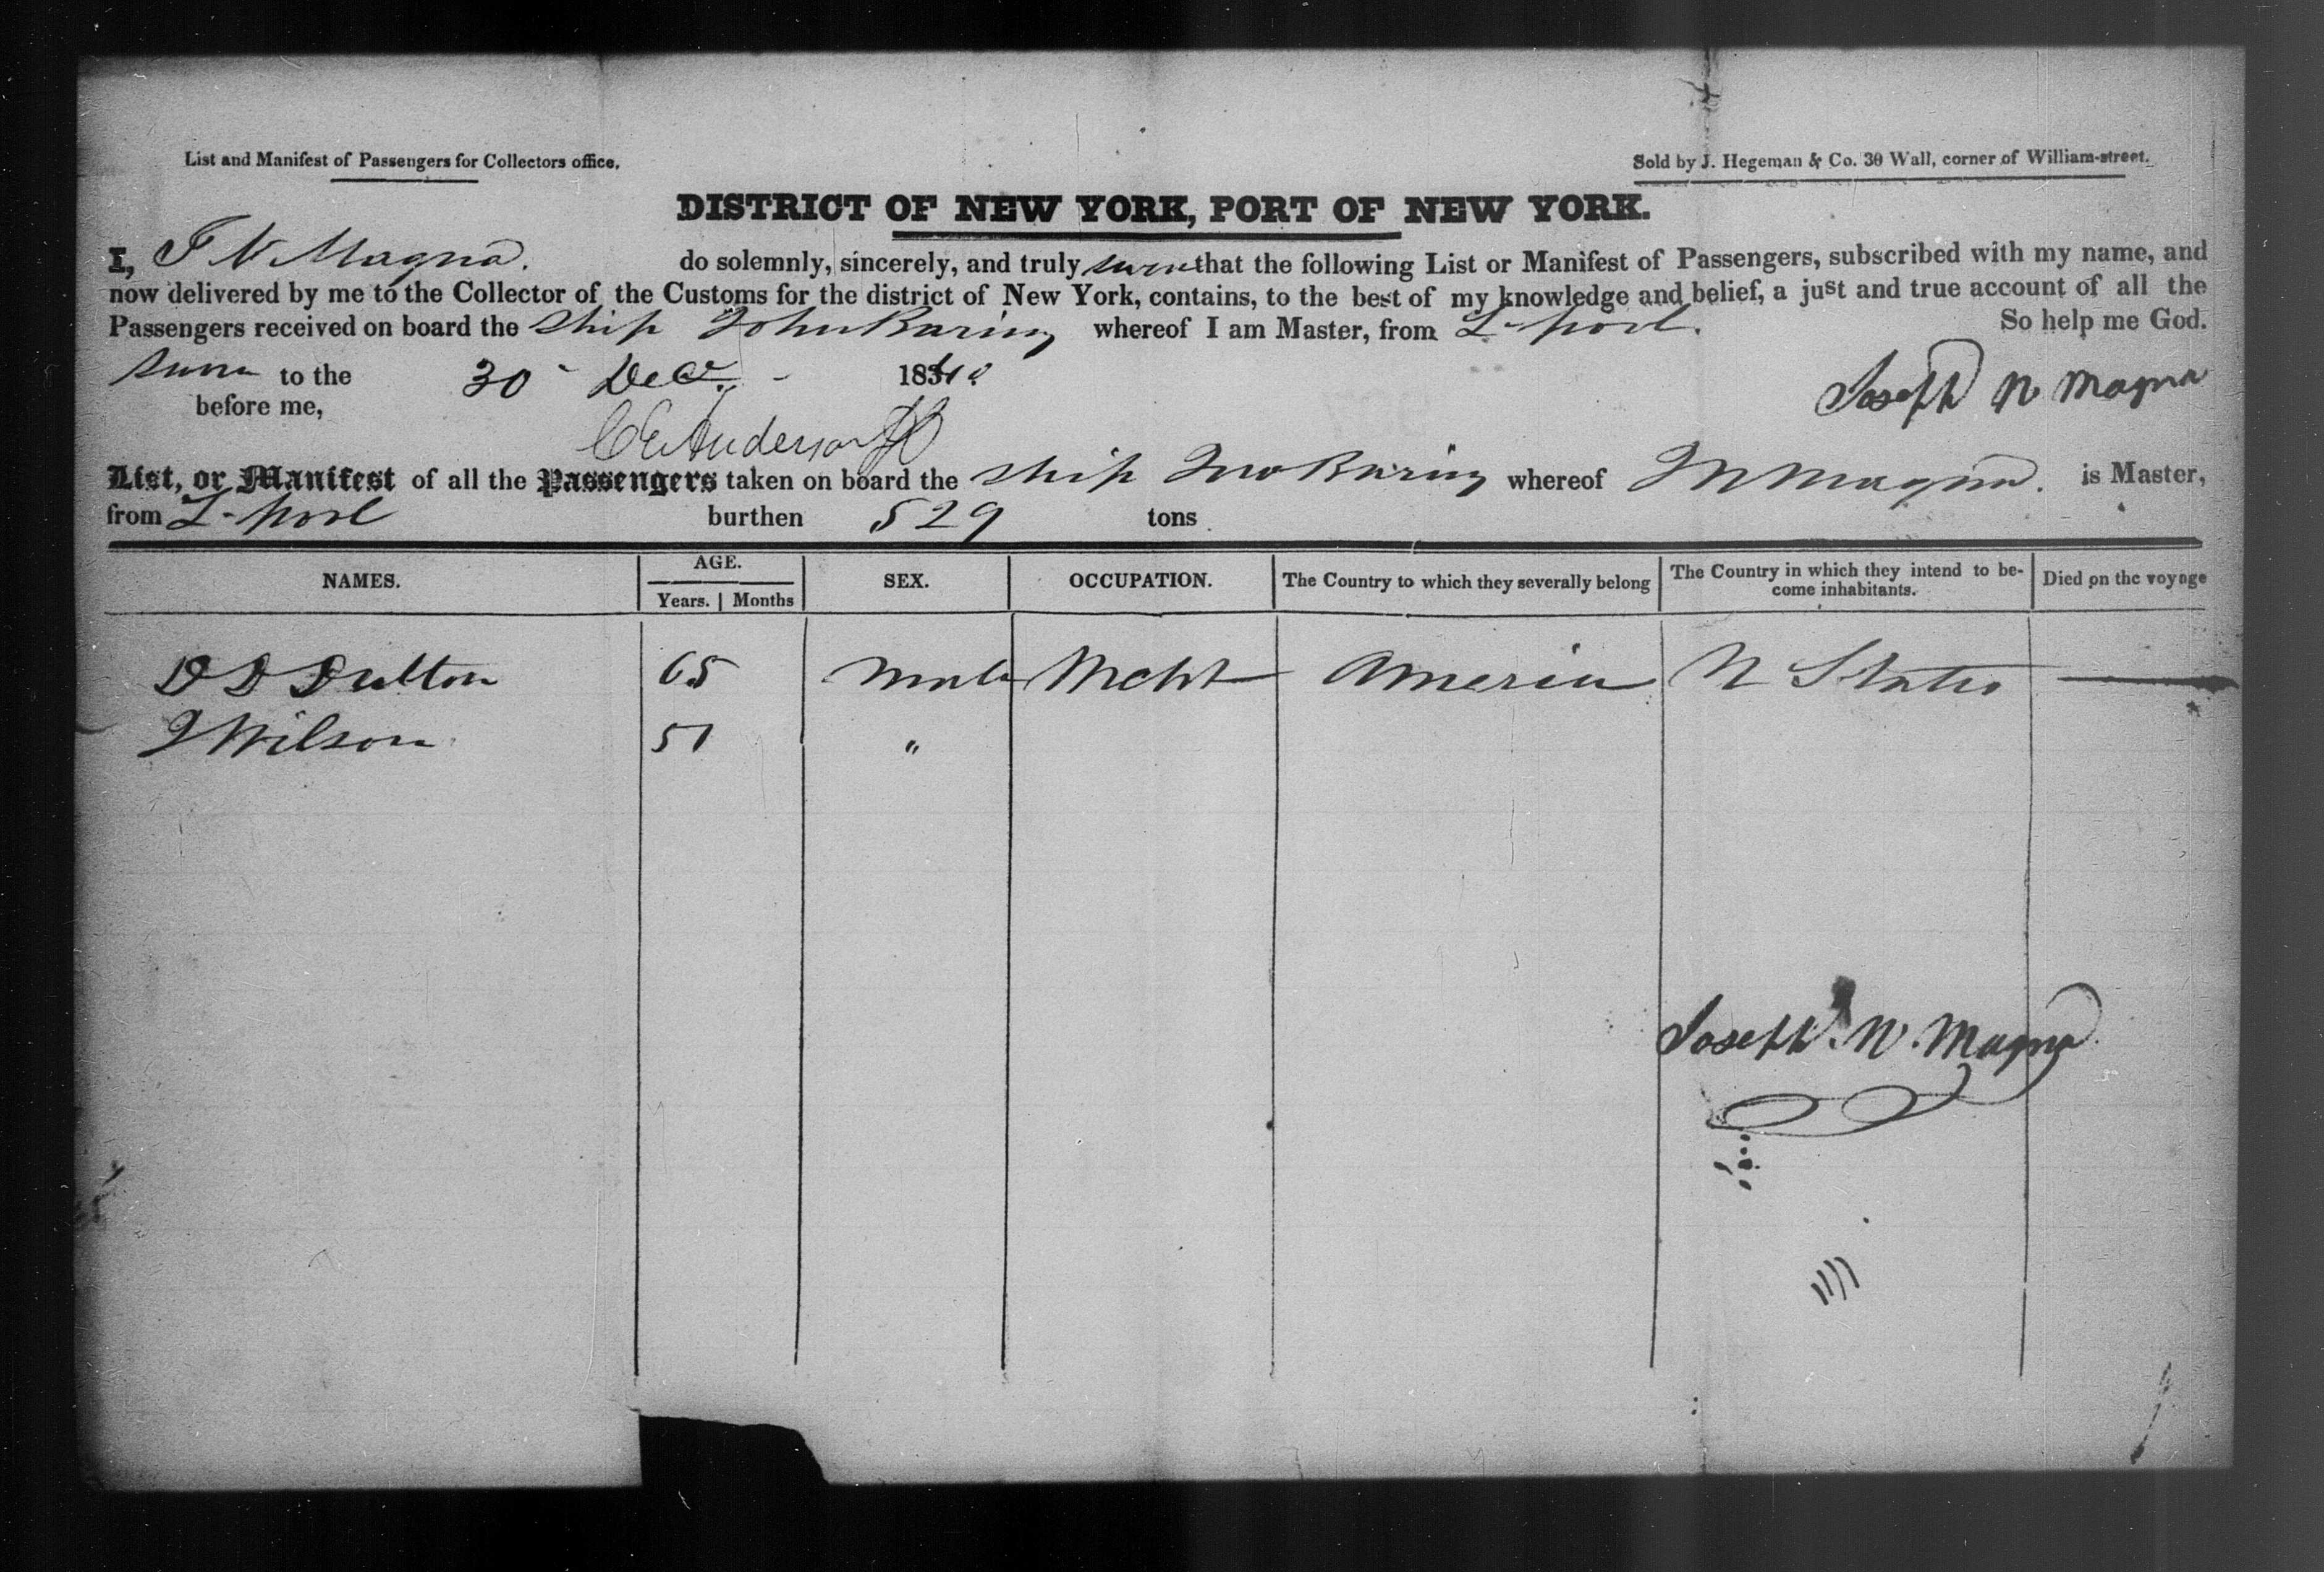 List and Manifest of Passengers for Collectors office.
Sold by J. Hegeman & Co. 30 Wall, corner of William-street.
DISTRICT OF NEW YORK, PORT OF NEW YORK.
I, J N Magna. do solemnly, sincerely, and truly swear that the following List or Manifest of Passengers, subscribed with my name, and
now delivered by me to the Collector of the Customs for the district of New York, contains, to the best of my knowledge and belief, a just and true account of all the
Passengers received on board the Ship John Baring whereof I am Master, from L-pool. So help me God.
Sworn to the 30 Dec. 1840
before me,
Joseph N Magna
C E Anderson
List, or Manifest of all the Passengers taken on board the Ship Jno Baring whereof Magna. is Master,
from L-pool burthen 529 tons
NAMES. AGE. SEX. OCCUPATION. The Country to which they severally belong The Country in which they intend to be-come inhabitants. Died on the voyage
Years. Months
65 Male Mcht America U States
J Wilson 51 "
Joseph N. Magna